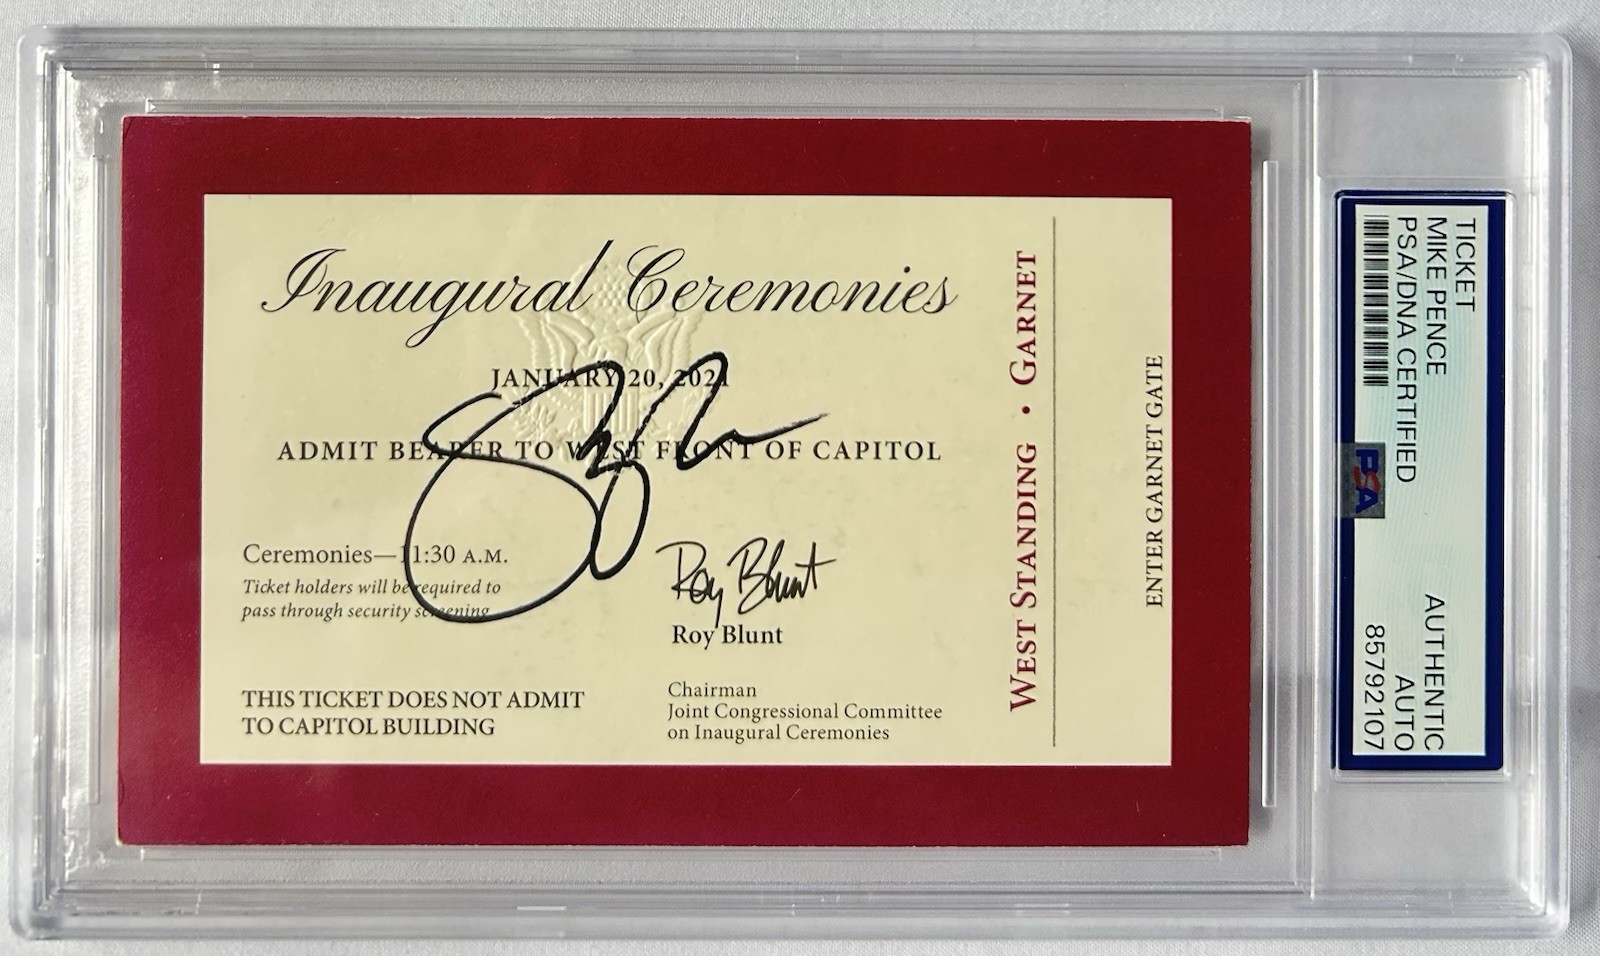 Inaugural Ceremonies
JANUARY 20, 2021
ADMIT BEARER TO WEST FRONT OF CAPITOL
Ceremonies—11:30 A.M.
Ticket holders will be required to
pass through security screening
THIS TICKET DOES NOT ADMIT
TO CAPITOL BUILDING
Roy Blunt
Roy Blunt
Chairman
Joint Congressional Committee
on Inaugural Ceremonies
WEST STANDING • GARNET
ENTER GARNET GATE
TICKET
MIKE PENCE
PSA/DNA CERTIFIED
AUTHENTIC
AUTO
85792107
PSA